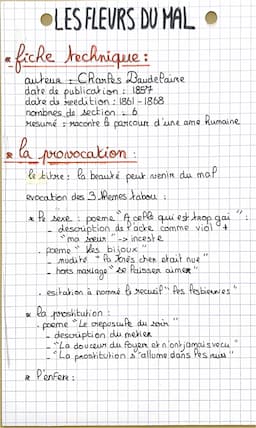 LES FLEURS DU MAL
* fiche technique :
auteur : Charles Baudelaire
date de publication : 1857
date de reedition : 1861 - 1868
nombres de section : 6
resumé : raconte le parcours d'une ame humaine
* la provocation :
le titre : la beauté peut venir du mal
evocation des 3 themes tabou :
* le sexe : poeme "A celle qui est trop gai" :
- description de l'acte comme viol +
"ma sœur" -> inceste
. poeme "les bijoux"
- nudité "la très cher etait nue"
- hors mariage "se laisser aimer"
. esitation à nommé le recueil "les lesbiennes"
* la prostitution :
. poeme "le crepuscule du soir"
- description du metier
- "La douceur du foyer et n'ont jamais vecu"
- "La prostitution s'allume dans les rues"
* l'enfer :